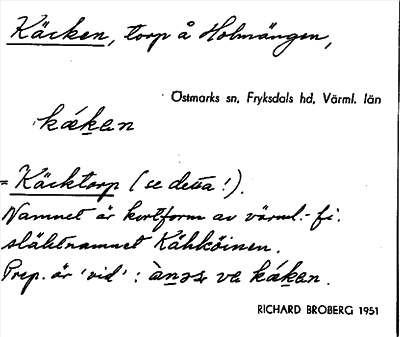 Käcken, torp å Holmängen,
Östmarks sn, Fryksdals hd, Värml. län
kǽken
= Käcktorp (se detta!).
Namnet är kortform av värml.- fi.
släktnamnet Kähköinen.
Prep. är 'vid': ve kǽken.
RICHARD BROBERG 1951